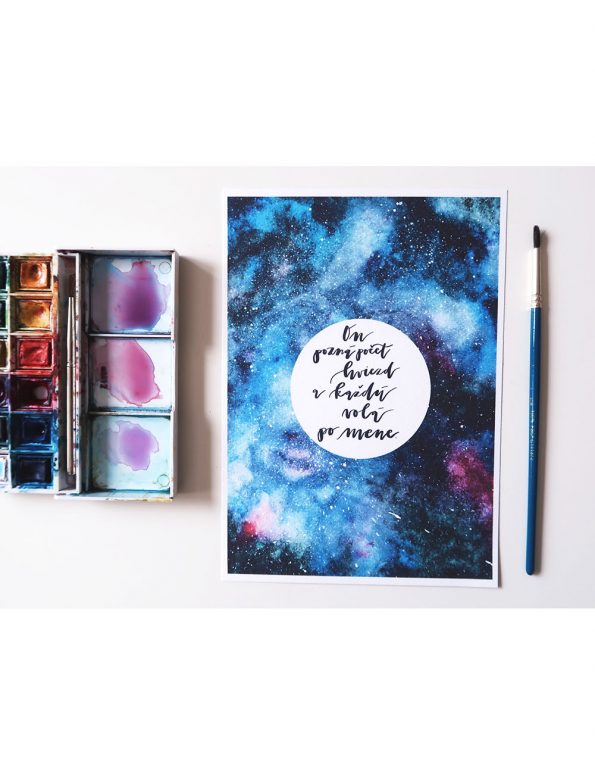 On
pozná počet
hviezd
a každú
volá
po mene